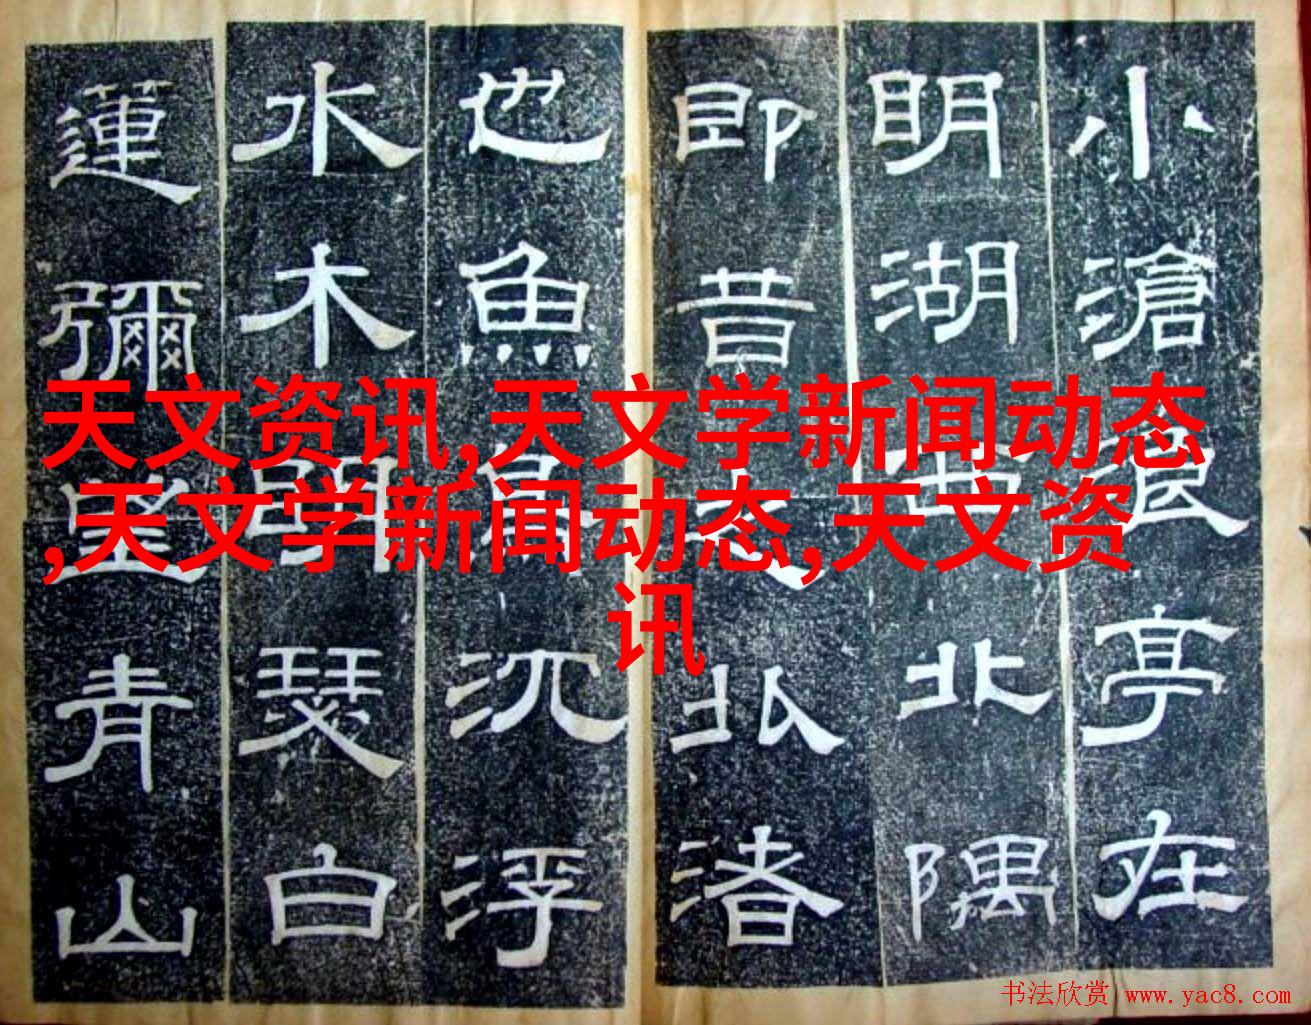 小滄浪亭在
明湖西北隅
即昔之北渚
也魚鳥沉浮
水木明瑟白
蓮彌望青山
天文资讯,天文学新闻动态
,天文学新闻动态,天文资
讯
书法欣赏 www.yac8.com